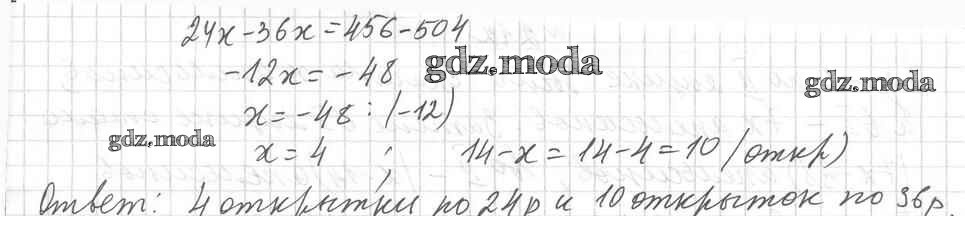 24x-36x=456-504
-12x=-48 gdz.moda
gdz.moda
x=-48:(-12)
gdz.moda
x=4 ; 14-x=14-4=10 (откр)
Ответ: 4 открытки по 24р и 10 открыток по 36р.